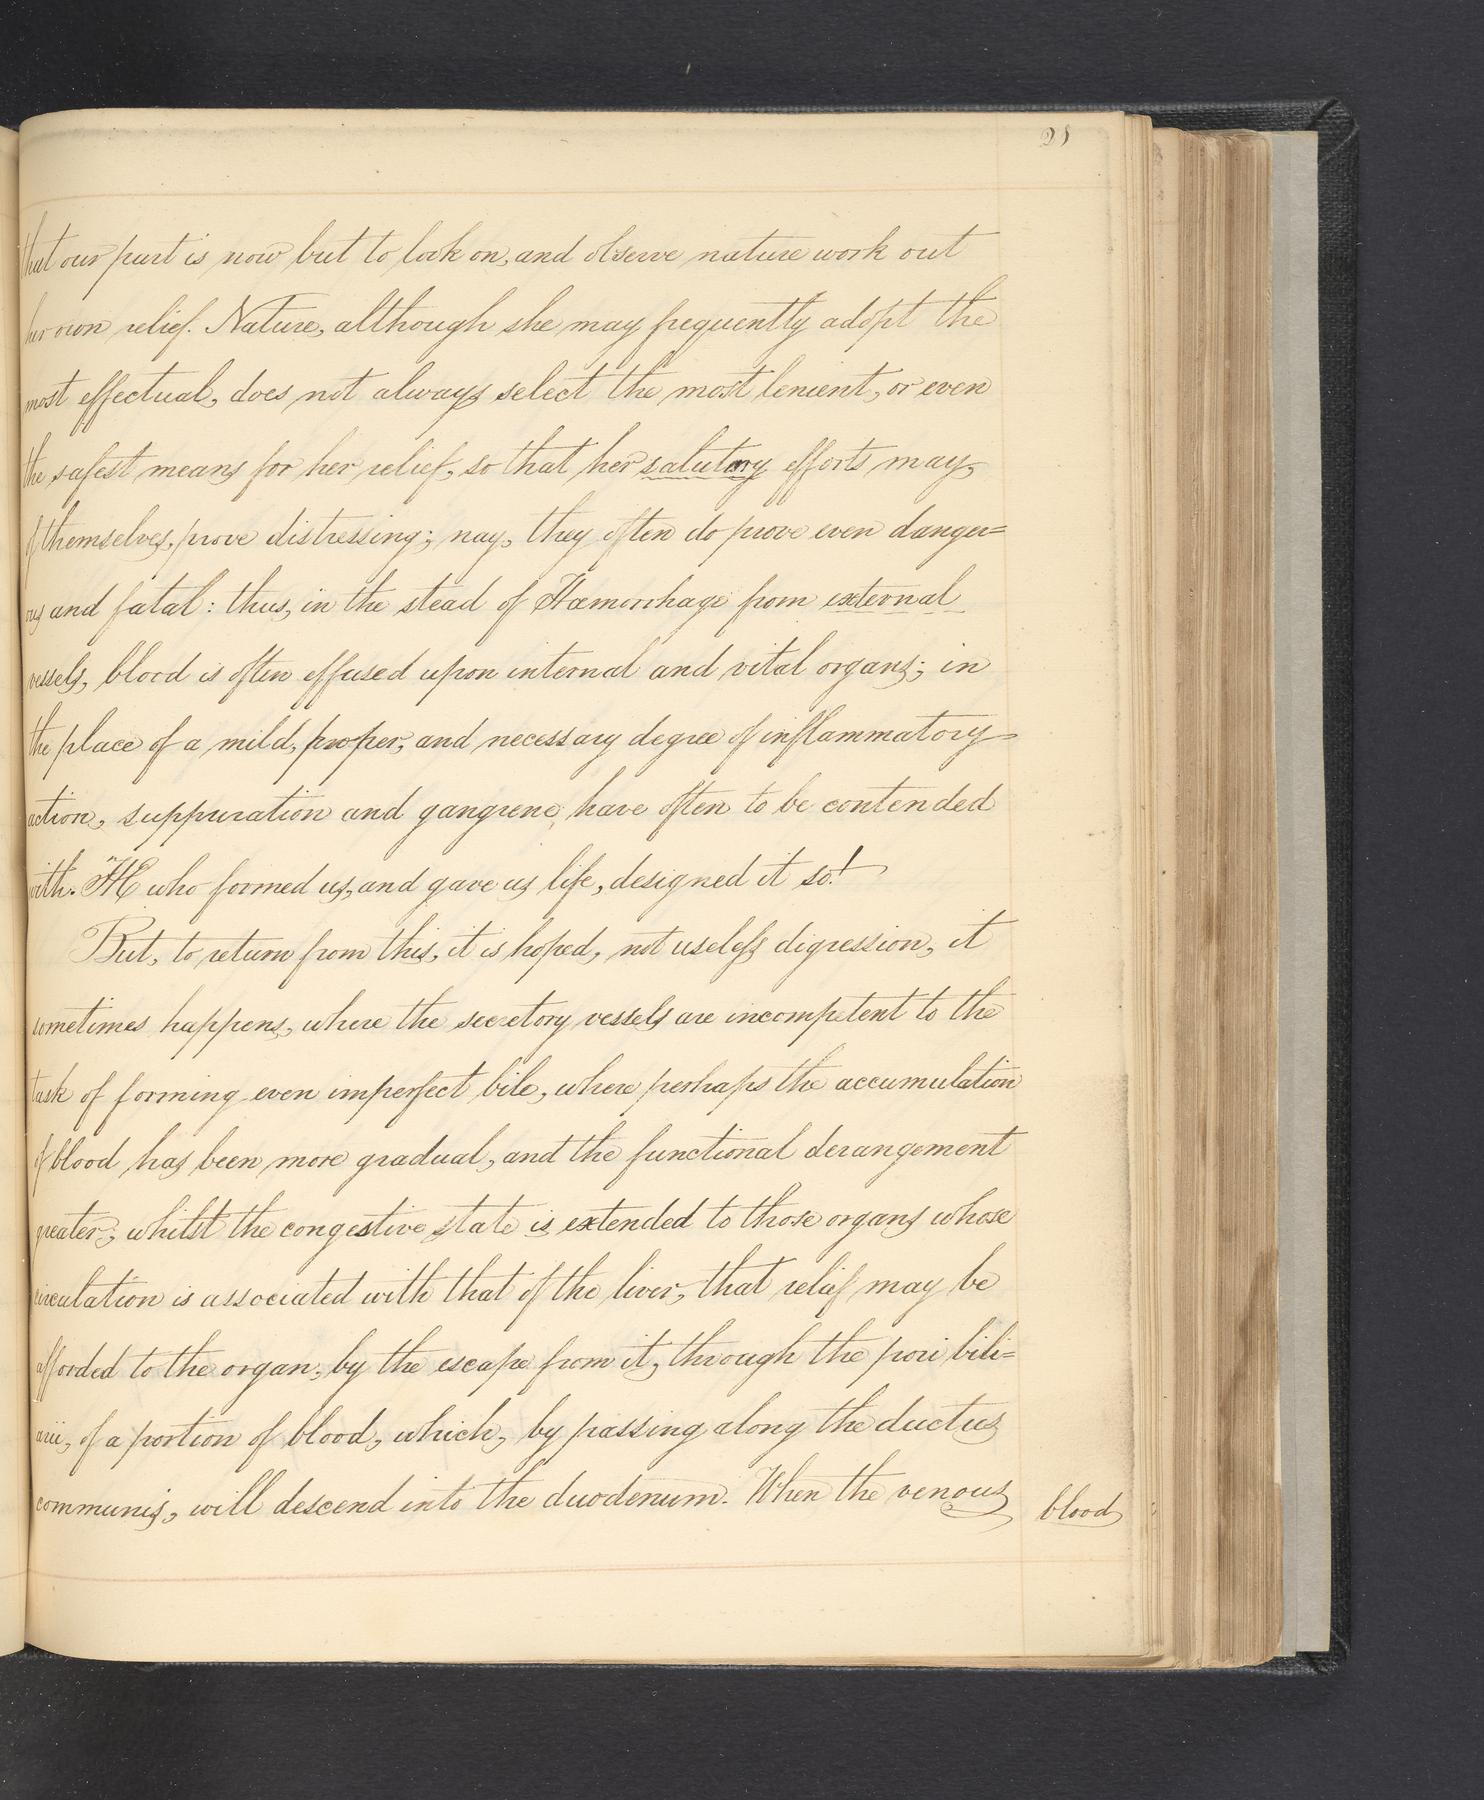 21
that our part is now but to look on, and observe nature work out
her own relief. Nature, although she may frequently adopt the
most effectual, does not always select the most lenient, or even
the safest means for her relief, so that her salutary efforts may,
of themselves, prove distressing; nay, they often do prove even danger=
ous and fatal: thus, in the stead of Hæmorrhage from external
vessels, blood is often effused upon internal and vital organs; in
the place of a mild, proper, and necessary degree of inflammatory
action, suppuration and gangrene, have often to be contended
with. HE who formed us, and gave us life, designed it so!
But, to return from this, it is hoped, not useless digression, it
sometimes happens, where the secretory vessels are incompetent to the
task of forming even imperfect bile, where perhaps the accumulation
of blood has been more gradual, and the functional derangement
greater; whilst the congestive state is extended to those organs whose
circulation is associated with that of the liver, that relief may be
afforded to the organ, by the escape from it, through the pori bili=
arii, of a portion of blood, which, by passing along the ductus
communis, will descend into the duodenum. When the venous
blood